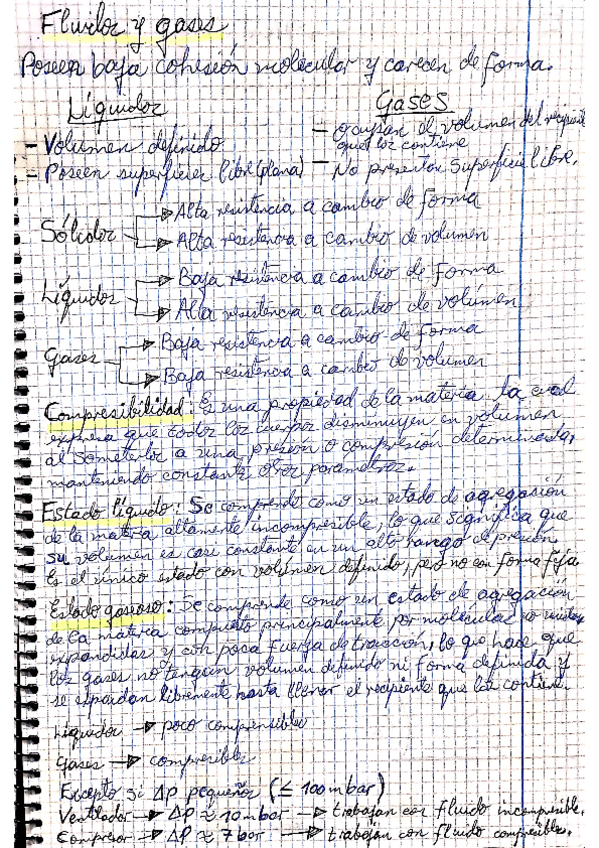 Fluidos y gases
Poseen baja cohesión molecular y carecen de forma.
Líquidos
Gases
- Volumen definido
- Poseen superficie libre (plana)
- ocupan el volumen del recipiente
que los contiene
- No presentan superficie libre.
Sólidos
Alta resistencia a cambio de forma
Alta resistencia a cambio de volumen
Líquidos
Baja resistencia a cambio de forma
Alta resistencia a cambio de volumen
Gases
Baja resistencia a cambio de forma
Baja resistencia a cambio de volumen
Compresibilidad: Es una propiedad de la materia la cual
expresa que todos los cuerpos disminuyen en volumen
al someterlos a una presión o compresión determinada,
manteniendo constante otros parametros.
Estado líquido: Se comprende como un estado de agregación
de la materia altamente incompresible, lo que significa que
su volumen es casi constante en un alto rango de presión
Es el único estado con volumen definido, pero no con forma fija
Estado gaseoso: Se comprende como un estado de agregación
de la materia compuesto principalmente por moléculas no unidas,
expandidas y con poca fuerza de tracción, lo que hace que
los gases no tengan volumen definido ni forma definida y
se expandan libremente hasta llenar el recipiente que los contiene.
Líquidos → poco compresibles
Gases → compresibles
Excepto si ΔP pequeños (≤ 100 mbar)
Ventilador → ΔP ≈ 10 mbar → trabajan con fluido incompresible.
Compresor → ΔP ≈ 7 bar → trabajan con fluido compresible.